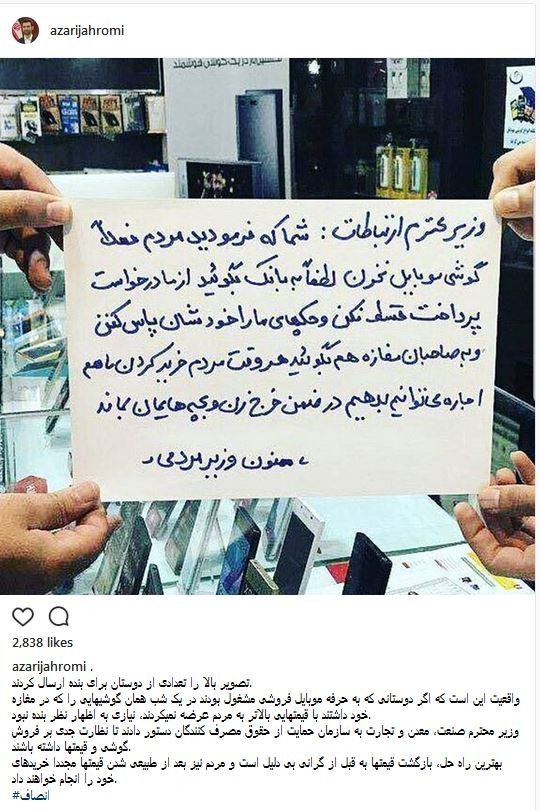 azarijahromi
وزیر محترم ارتباطات : شما که فرمودید مردم فعلاً
گوشی موبایل نخرن لطفاً به بانک بگوئید از ما درخواست
پرداخت قسط نکن و چکهای ما را خودشان پاس کنن
و به صاحبان مغازه هم بگوئید هر وقت مردم خرید کردن ما هم
اجاره می توانیم بدهیم در ضمن خرج زن و بچه هایمان بماند
، ممنون وزیر مردمی ،
2,838 likes
azarijahromi .
تصویر بالا را تعدادی از دوستان برای بنده ارسال کردند.
واقعیت این است که اگر دوستانی که به حرفه موبایل فروشی مشغول بودند در یک شب همان گوشیهایی را که در مغازه
خود داشتند با قیمتهایی بالاتر به مردم عرضه نمیکردند، نیازی به اظهار نظر بنده نبود.
وزیر محترم صنعت، معدن و تجارت به سازمان حمایت از حقوق مصرف کنندگان دستور دادند تا نظارت جدی بر فروش
گوشی و قیمتها داشته باشند.
بهترین راه حل، بازگشت قیمتها به قبل از گرانی بی دلیل است و مردم نیز بعد از طبیعی شدن قیمتها مجددا خریدهای
خود را انجام خواهند داد.
#انصاف